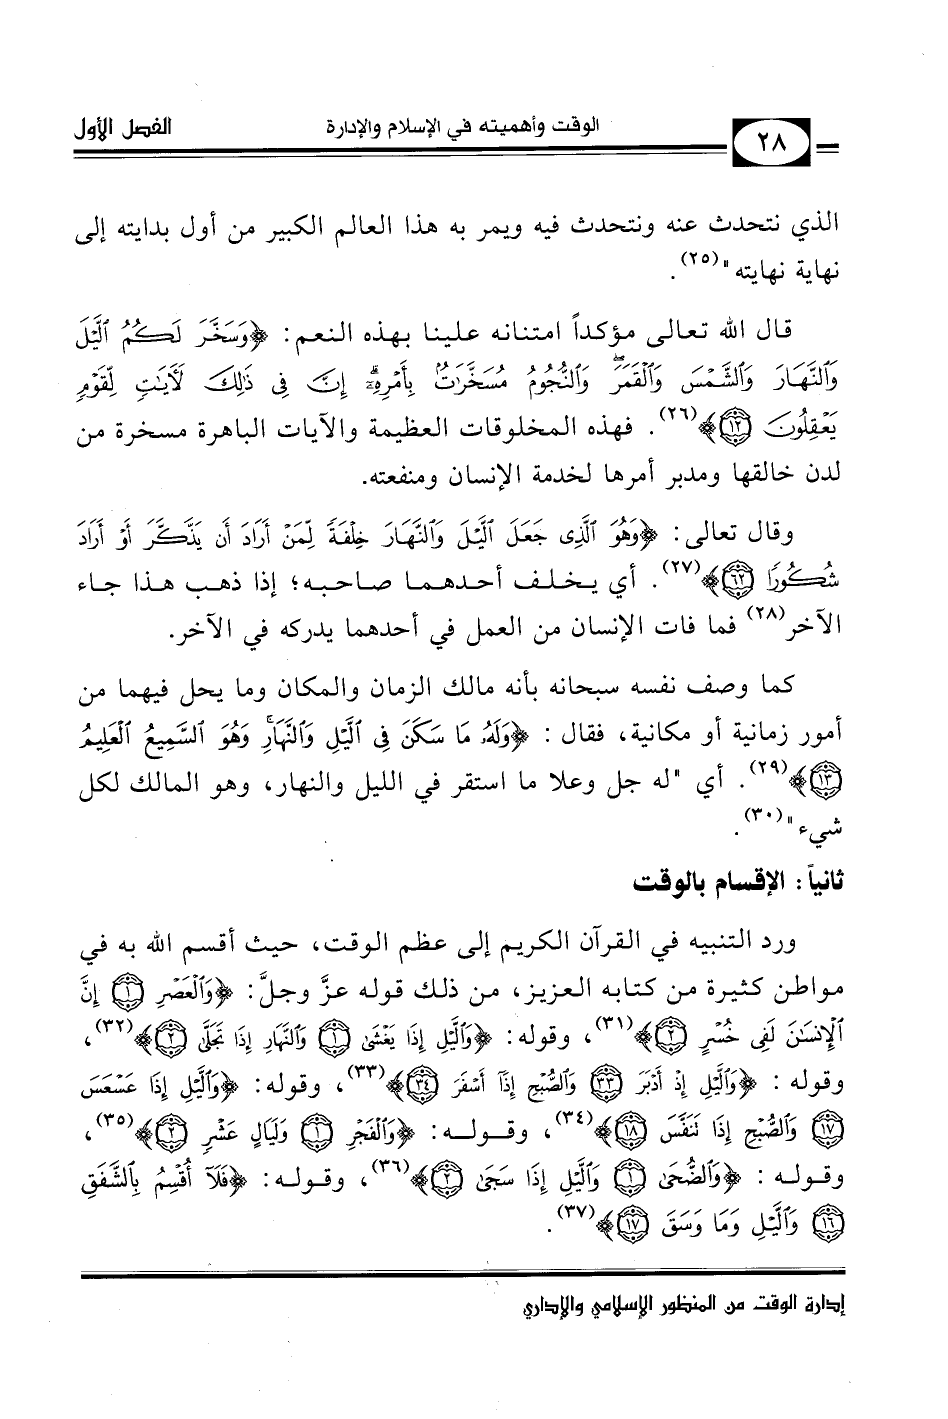 ٢٨ الوقت وأهميته في الإسلام والإدارة الفصل الأول
الذي نتحدث عنه ونتحدث فيه ويمر به هذا العالم الكبير من أول بدايته إلى
نهاية نهايته"(٢٥).
قال الله تعالى مؤكداً امتنانه علينا بهذه النعم: ﴿وَسَخَّرَ لَكُمُ ٱلَّيْلَ
وَٱلنَّهَارَ وَٱلشَّمْسَ وَٱلْقَمَرَ ۖ وَٱلنُّجُومُ مُسَخَّرَٰتٌۢ بِأَمْرِهِۦٓ ۗ إِنَّ فِى ذَٰلِكَ لَـَٔايَٰتٍ لِّقَوْمٍ
يَعْقِلُونَ ١٢﴾(٢٦). فهذه المخلوقات العظيمة والآيات الباهرة مسخرة من
لدن خالقها ومدبر أمرها لخدمة الإنسان ومنفعته.
وقال تعالى: ﴿وَهُوَ ٱلَّذِى جَعَلَ ٱلَّيْلَ وَٱلنَّهَارَ خِلْفَةً لِّمَنْ أَرَادَ أَن يَذَّكَّرَ أَوْ أَرَادَ
شُكُورًا ٦٢﴾(٢٧). أي يخلف أحدهما صاحبه؛ إذا ذهب هذا جاء
الآخر(٢٨) فما فات الإنسان من العمل في أحدهما يدركه في الآخر.
كما وصف نفسه سبحانه بأنه مالك الزمان والمكان وما يحل فيهما من
أمور زمانية أو مكانية، فقال : ﴿وَلَهُۥ مَا سَكَنَ فِى ٱلَّيْلِ وَٱلنَّهَارِ ۚ وَهُوَ ٱلسَّمِيعُ ٱلْعَلِيمُ
١٣﴾(٢٩). أي "له جل وعلا ما استقر في الليل والنهار، وهو المالك لكل
شيء"(٣٠).
ثانياً : الإقسام بالوقت
ورد التنبيه في القرآن الكريم إلى عظم الوقت، حيث أقسم الله به في
مواطن كثيرة من كتابه العزيز، من ذلك قوله عزَّ وجلَّ: ﴿وَٱلْعَصْرِ ١ إِنَّ
ٱلْإِنسَٰنَ لَفِى خُسْرٍ ٢﴾(٣١)، وقوله: ﴿وَٱلَّيْلِ إِذَا يَغْشَىٰ ١ وَٱلنَّهَارِ إِذَا تَجَلَّىٰ ٢﴾(٣٢)،
وقوله : ﴿وَٱلَّيْلِ إِذْ أَدْبَرَ ٣٣ وَٱلصُّبْحِ إِذَآ أَسْفَرَ ٣٤﴾(٣٣)، وقوله: ﴿وَٱلَّيْلِ إِذَا عَسْعَسَ
١٧ وَٱلصُّبْحِ إِذَا تَنَفَّسَ ١٨﴾(٣٤)، وقوله: ﴿وَٱلْفَجْرِ ١ وَلَيَالٍ عَشْرٍ ٢﴾(٣٥)،
وقوله : ﴿وَٱلضُّحَىٰ ١ وَٱلَّيْلِ إِذَا سَجَىٰ ٢﴾(٣٦)، وقوله: ﴿فَلَآ أُقْسِمُ بِٱلشَّفَقِ
١٦ وَٱلَّيْلِ وَمَا وَسَقَ ١٧﴾(٣٧).
إدارة الوقت من المنظور الإسلامي والإداري